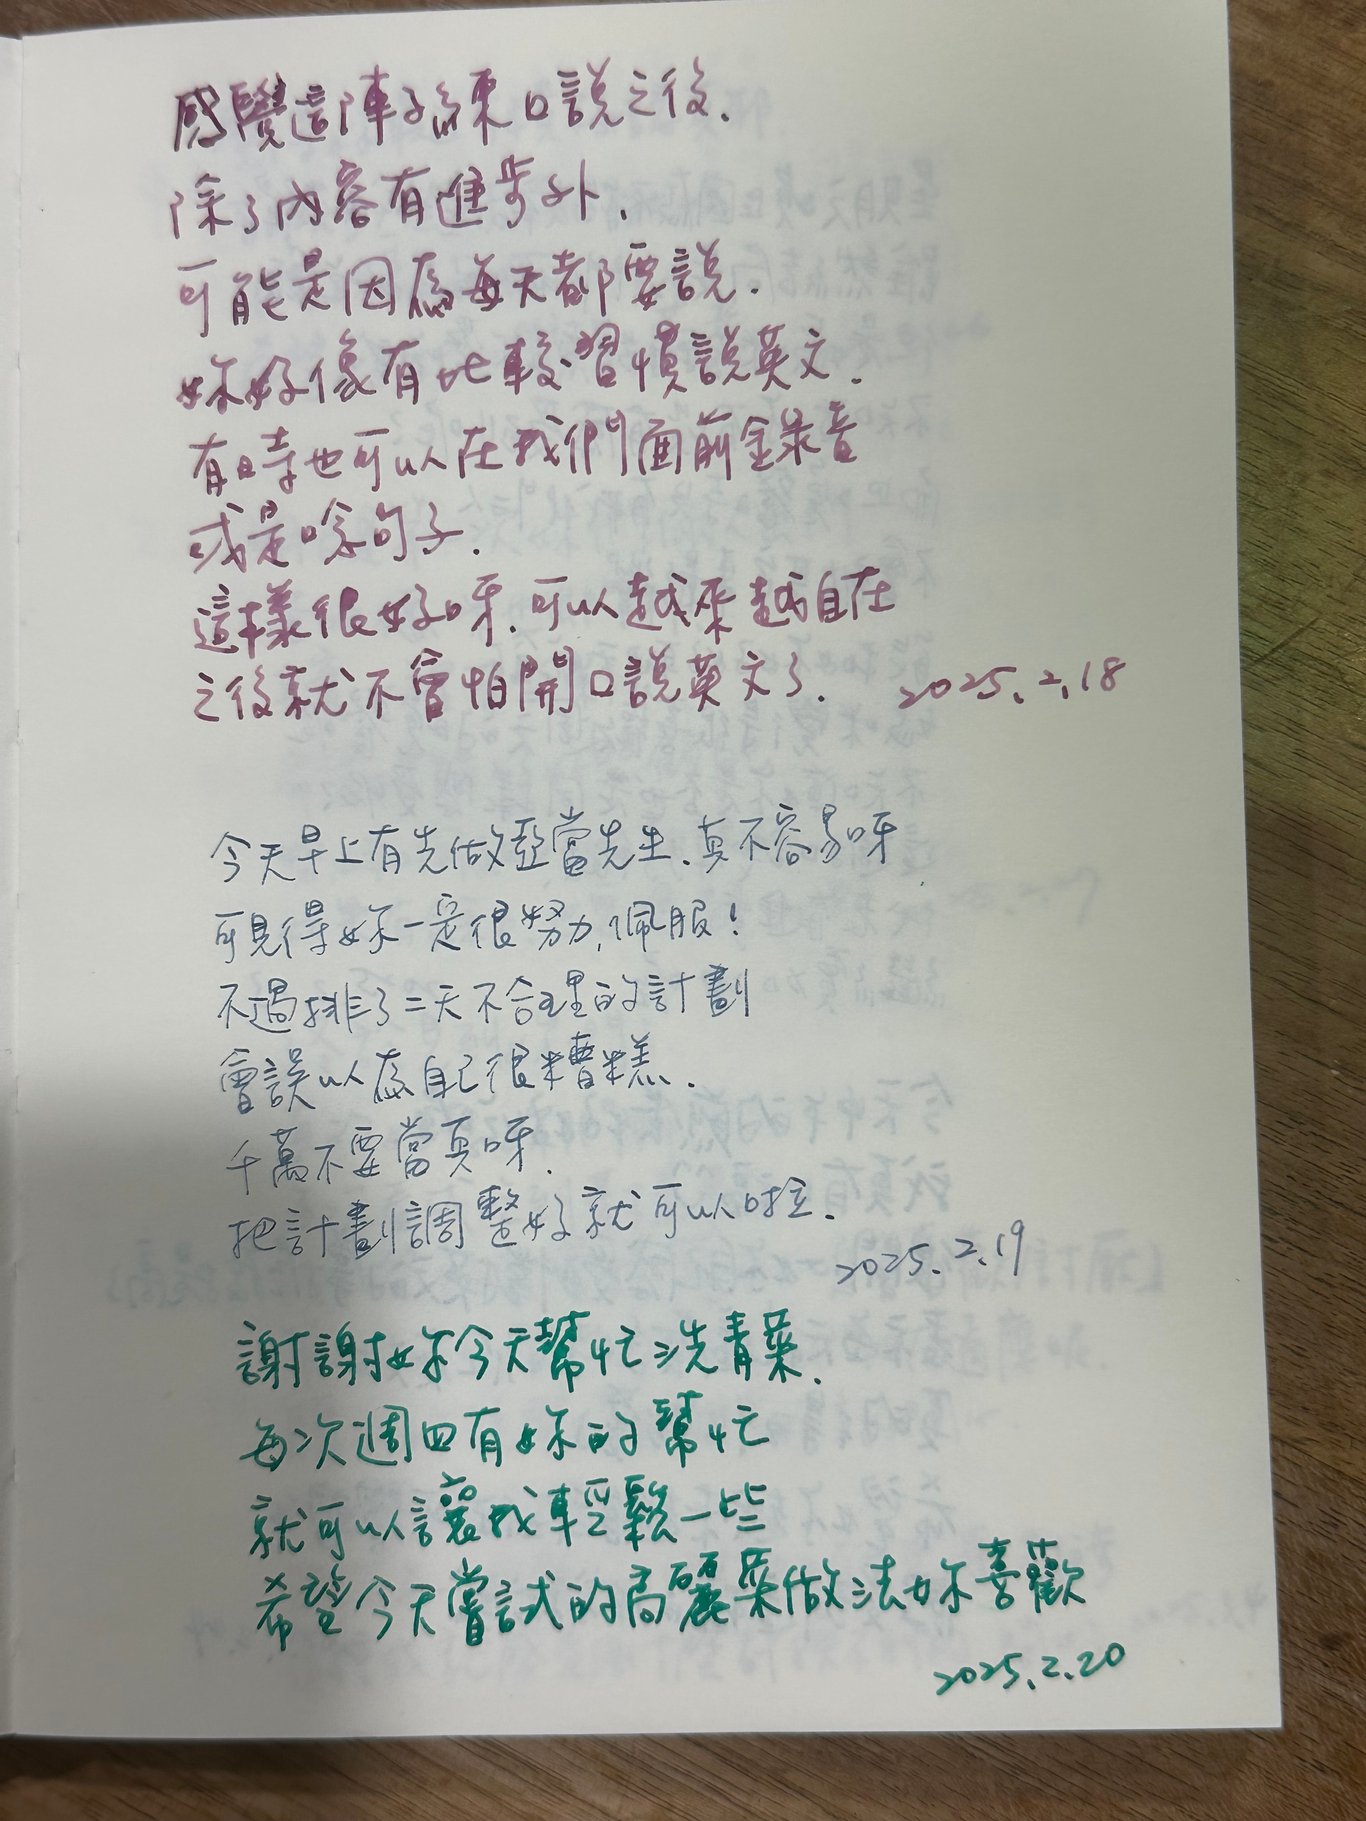 感覺這陣子練口說之後.
除了內容有進步外.
可能是因為每天都要說.
妳好像有比較習慣說英文.
有時也可以在我們面前錄音
或是唸句子.
這樣很好呀.可以越來越自在
之後就不會怕開口說英文了. 2025.2.18
今天早上有先做亞當先生、真不容易呀
可見得妳一定很努力,佩服!
不過排了二天不合理的計劃
會誤以為自己很糟糕.
千萬不要當真呀.
把計劃調整好就可以啦.
2025.2.19
謝謝妳今天幫忙洗青菜.
每次週四有妳的幫忙
就可以讓我輕鬆一些
希望今天嘗試的高麗菜做法妳喜歡
2025.2.20